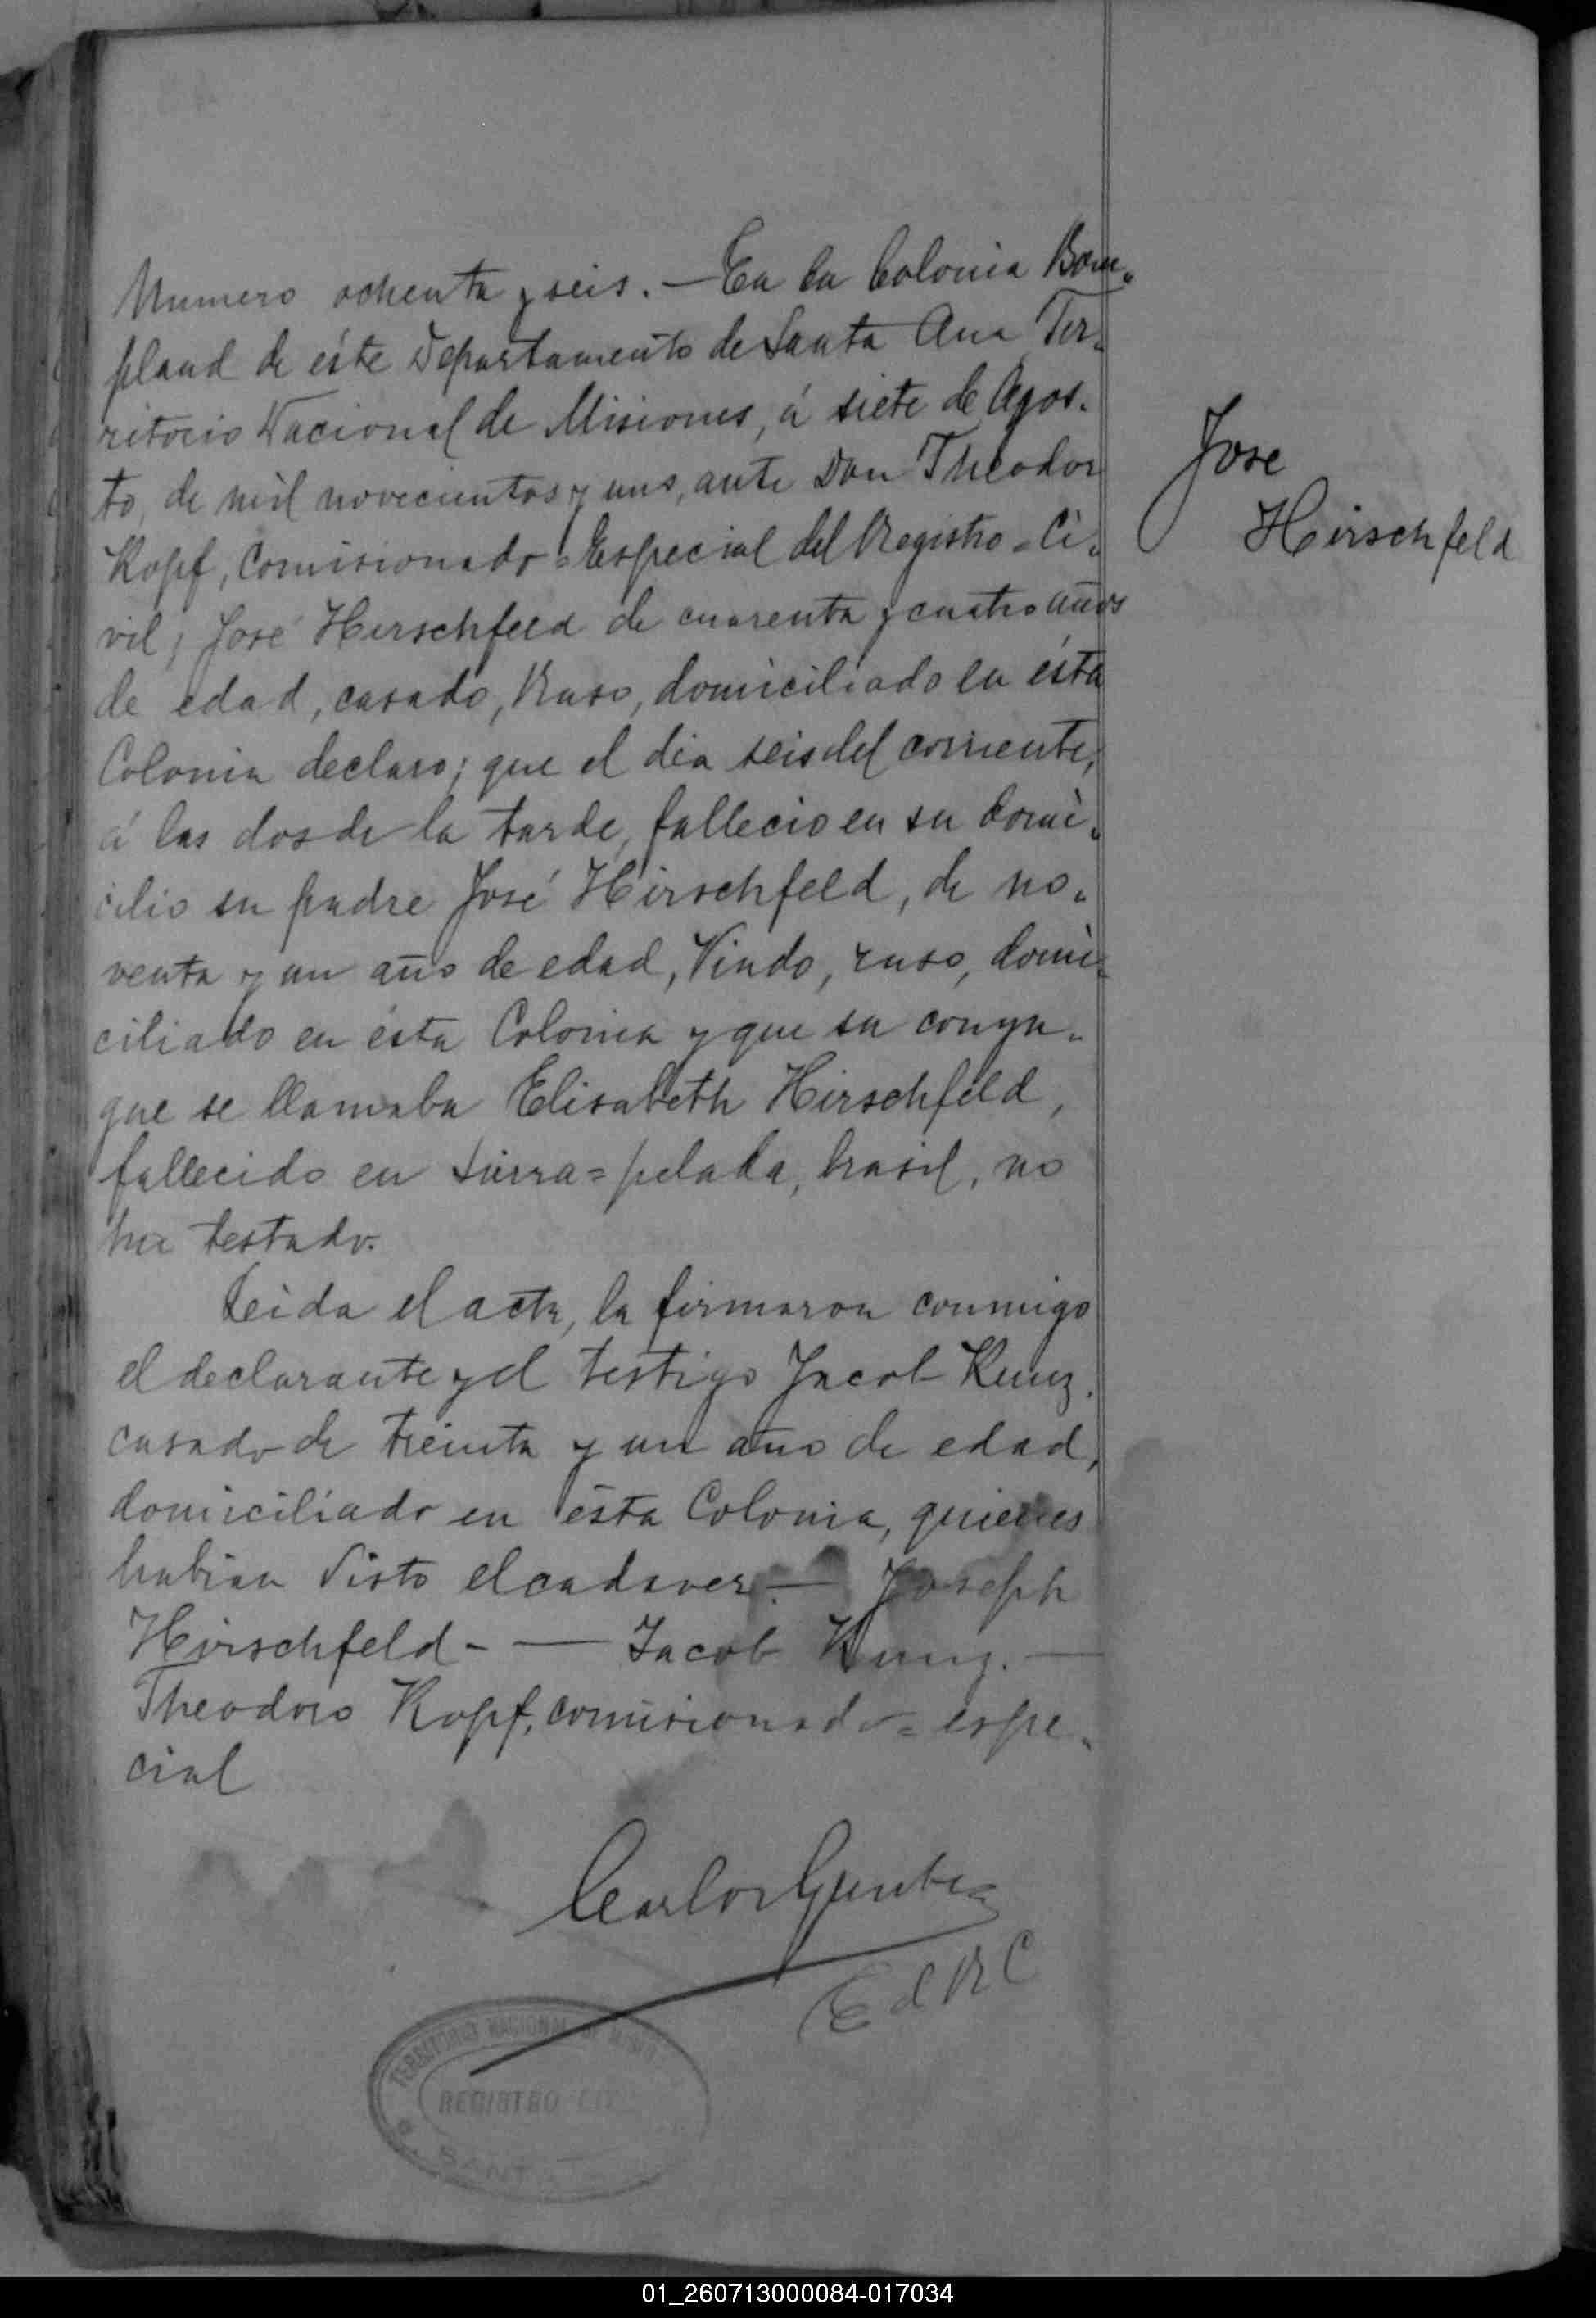 Numero ochenta y seis. — En la Colonia Bom-
pland de éste Departamento de Santa Ana Ter-
ritorio Nacional de Misiones, á siete de Agos-
to, de mil novecientos y uno, ante Don Theodor
Kopf, Comisionado Especial del Registro=Ci-
vil; José Herschfeld de cuarenta y cuatro años
de edad, casado, Ruso, domiciliado en ésta
Colonia declaro; que el dia seis del corriente,
á las dos de la tarde, fallecio en su domi-
cilio su padre José Hirschfeld, de no-
venta y un año de edad, Viudo, ruso, domi-
ciliado en ésta Colonia y que su conyu-
gue se llamaba Elisabeth Hirschfeld,
fallecido en Sierra=pelada, brasil, no
ha testado.
Leida el acta, la firmaron conmigo
el declarante y el testigo Jacob Kunz,
casado de treinta y un año de edad,
domiciliado en ésta Colonia, quienes
habian visto el cadaver. — Joseph
Hirschfeld - — Jacob Kunz. —
Theodoro Kopf, comisionado=espe-
cial
Jose
Hirschfeld
Carlos
E d R C
TERRITORIO NACIONAL DE
REGISTRO
SANTA
01_260713000084-017034